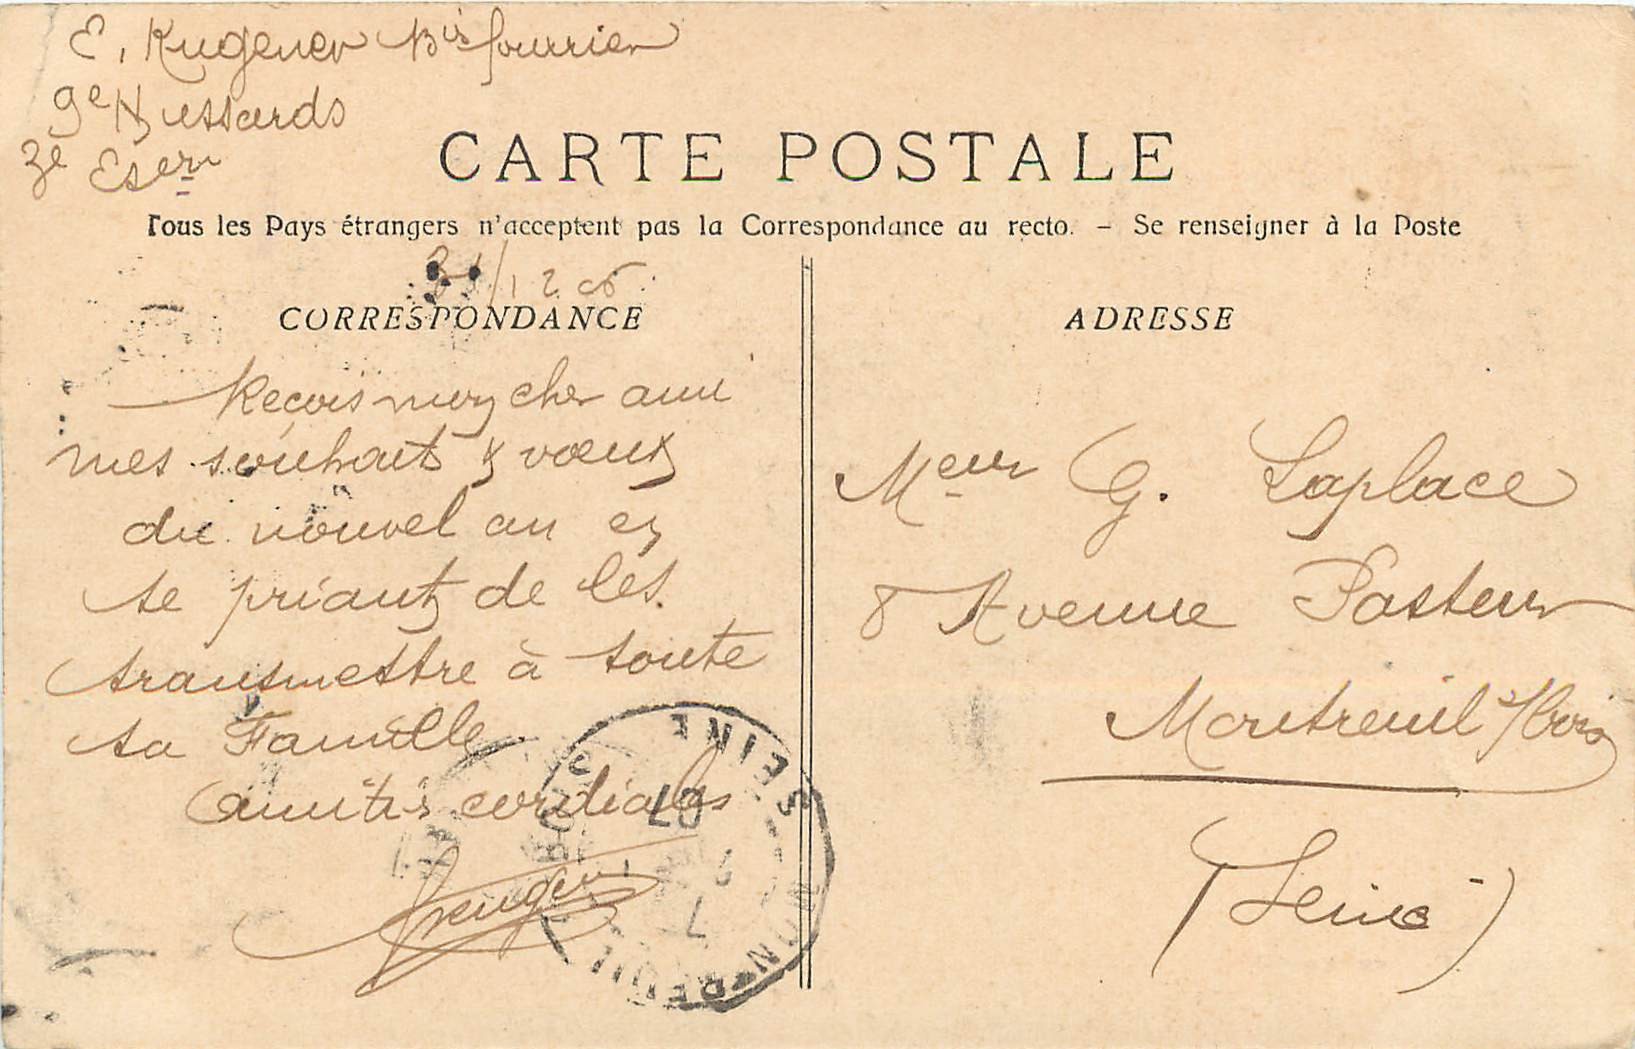 E. Kugener Bis fourrier
9e Hussards
3e Escn
CARTE POSTALE
Tous les Pays étrangers n'acceptent pas la Correspondance au recto. – Se renseigner à la Poste
31/12 06
CORRESPONDANCE
Reçois mon cher ami
mes souhait & vœux
du nouvel an en
te priant de les
transmettre à toute
ta Famille
Amitiés cordiales
Kugener
ADRESSE
Meur G. Laplace
8 Avenue Pasteur
Montreuil s/Bois
(Seine)
MONTREUIL
SEINE
07